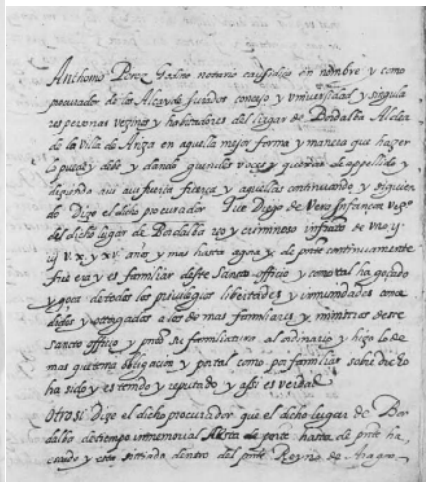 Anthonio Perez Godino notario causidico en nombre y como
procurador de los Alcayde Jurados concejo y universidad y singula
res personas vezinos y habitadores del lugar de Bordalba Aldea
de la Villa de Ariza en aquella mejor forma y manera que hazer
lo puede y debe y dando voces y de appellido y
diziendo aui aui fuerça fuerça y aquellas continuando y siguien
do Dize el dicho procurador Que Diego de Vera Infançon Vezº
del dicho lugar de Bordalba reo y criminoso infrato de uno ij
iij v. x. y xv. años y mas hasta agora y de pnte continuamente
fue era y es familiar deste Sancto officio y como tal ha gozado
y goza de todos los privilegios libertades y immunidades conce
didos y ottorgados a los de mas familiares y ministros deste
sancto officio y pntó su familiatura al ordinario y hizo lo de
mas que tenia obligacion y por tal como por familiar sobre dicho
ha sido y es tenido y reputado y assi es verdad
Otrosi Dize el dicho procurador que el dicho lugar de Bor
dalba de tiempo immemorial hasta de pnte ha
estado y esta sittiado dentro del pnte Reyno de Aragon